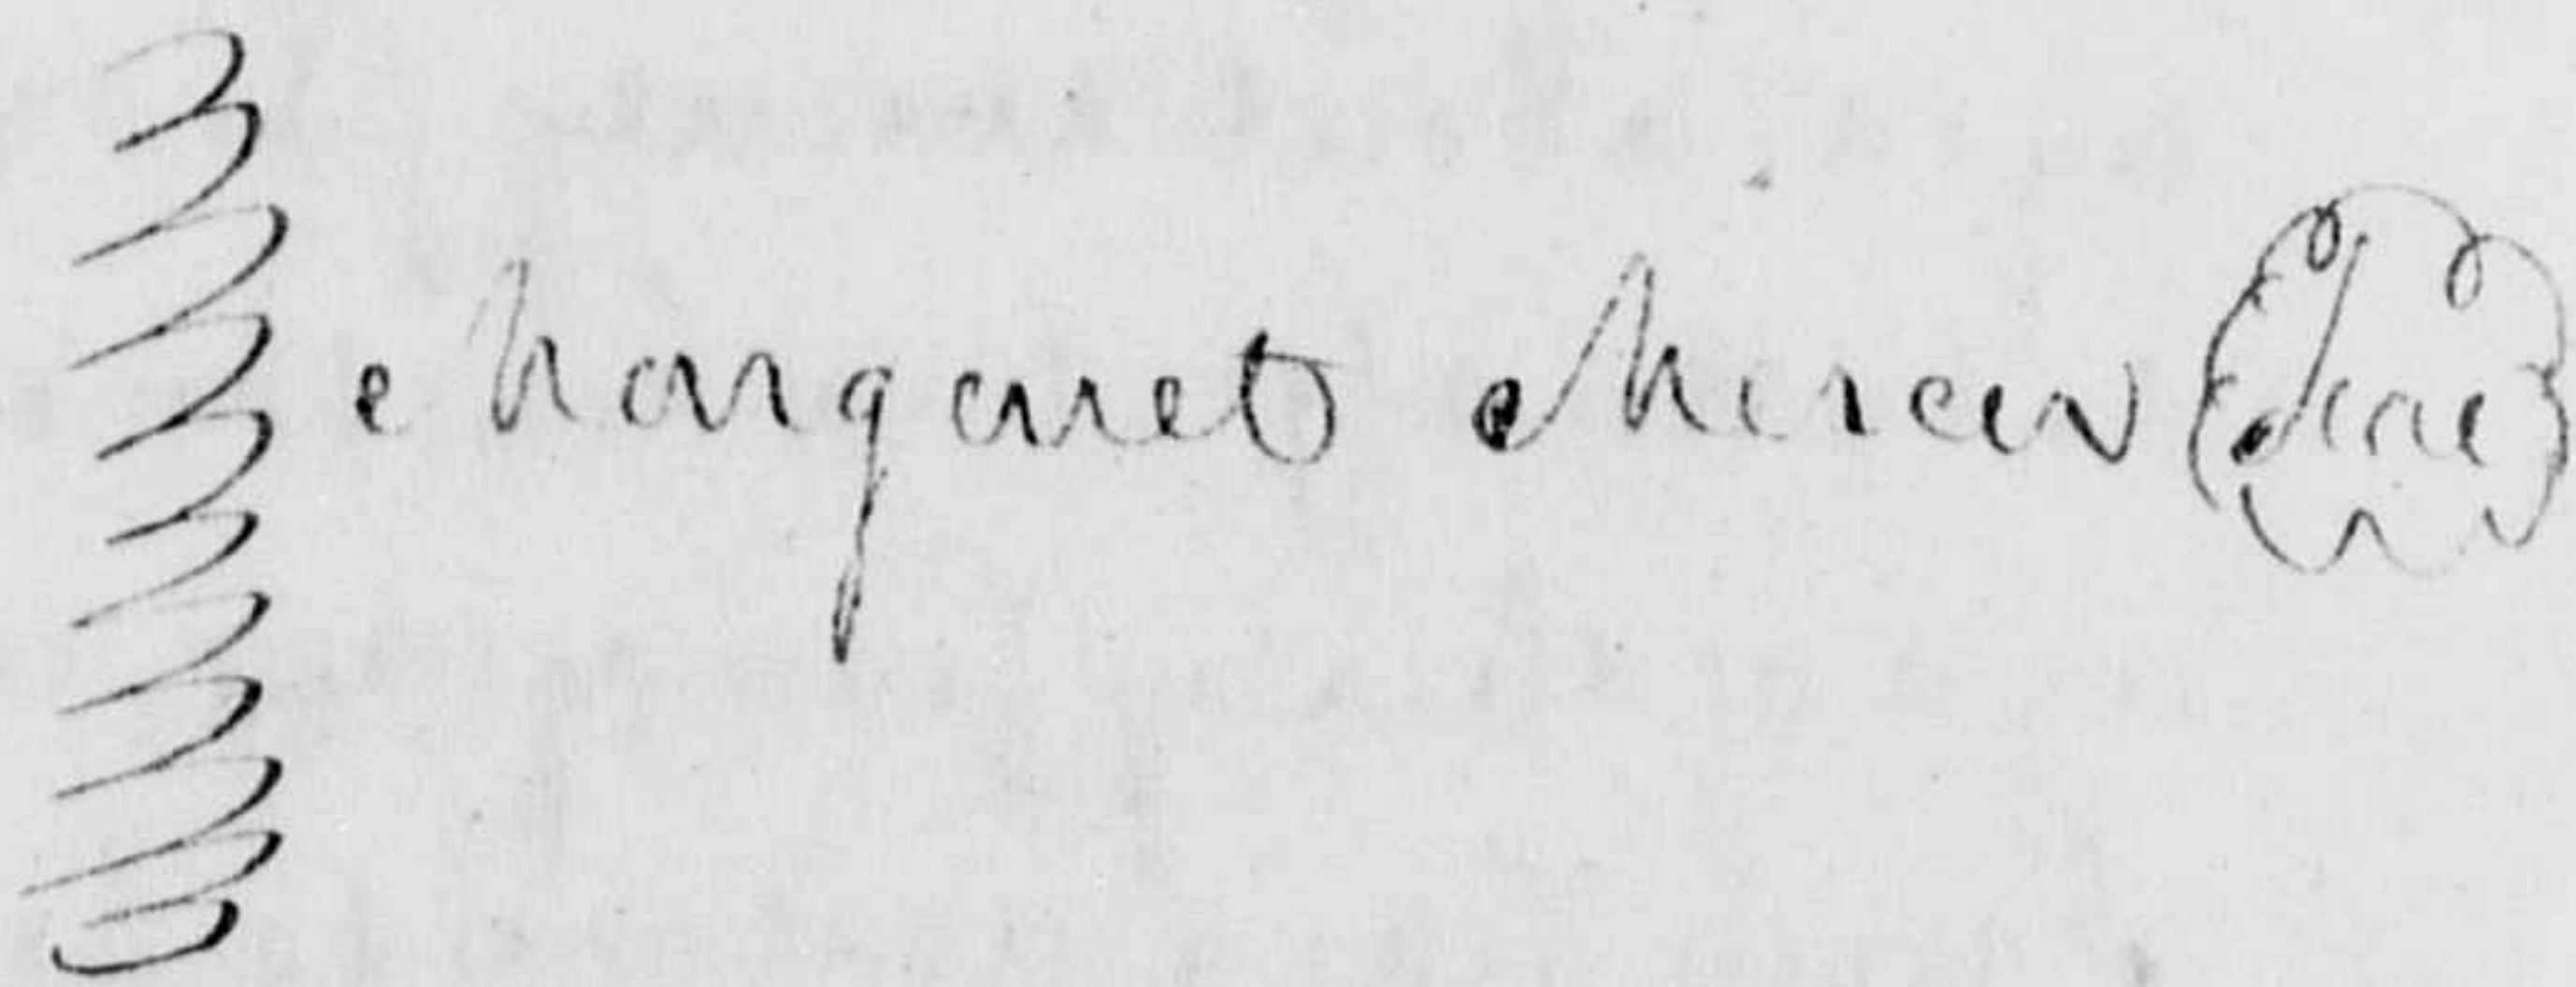 Margaret Miser Seal